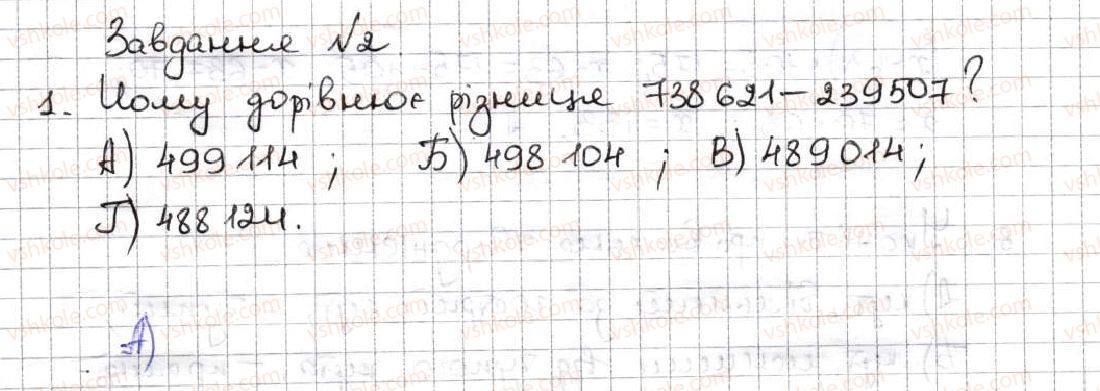 Завдання №2.
1. Чому дорівнює різниця 738 621 – 239507?
А) 499 114 ; Б) 498 104 ; В) 489 014 ;
Г) 488 124.
А)